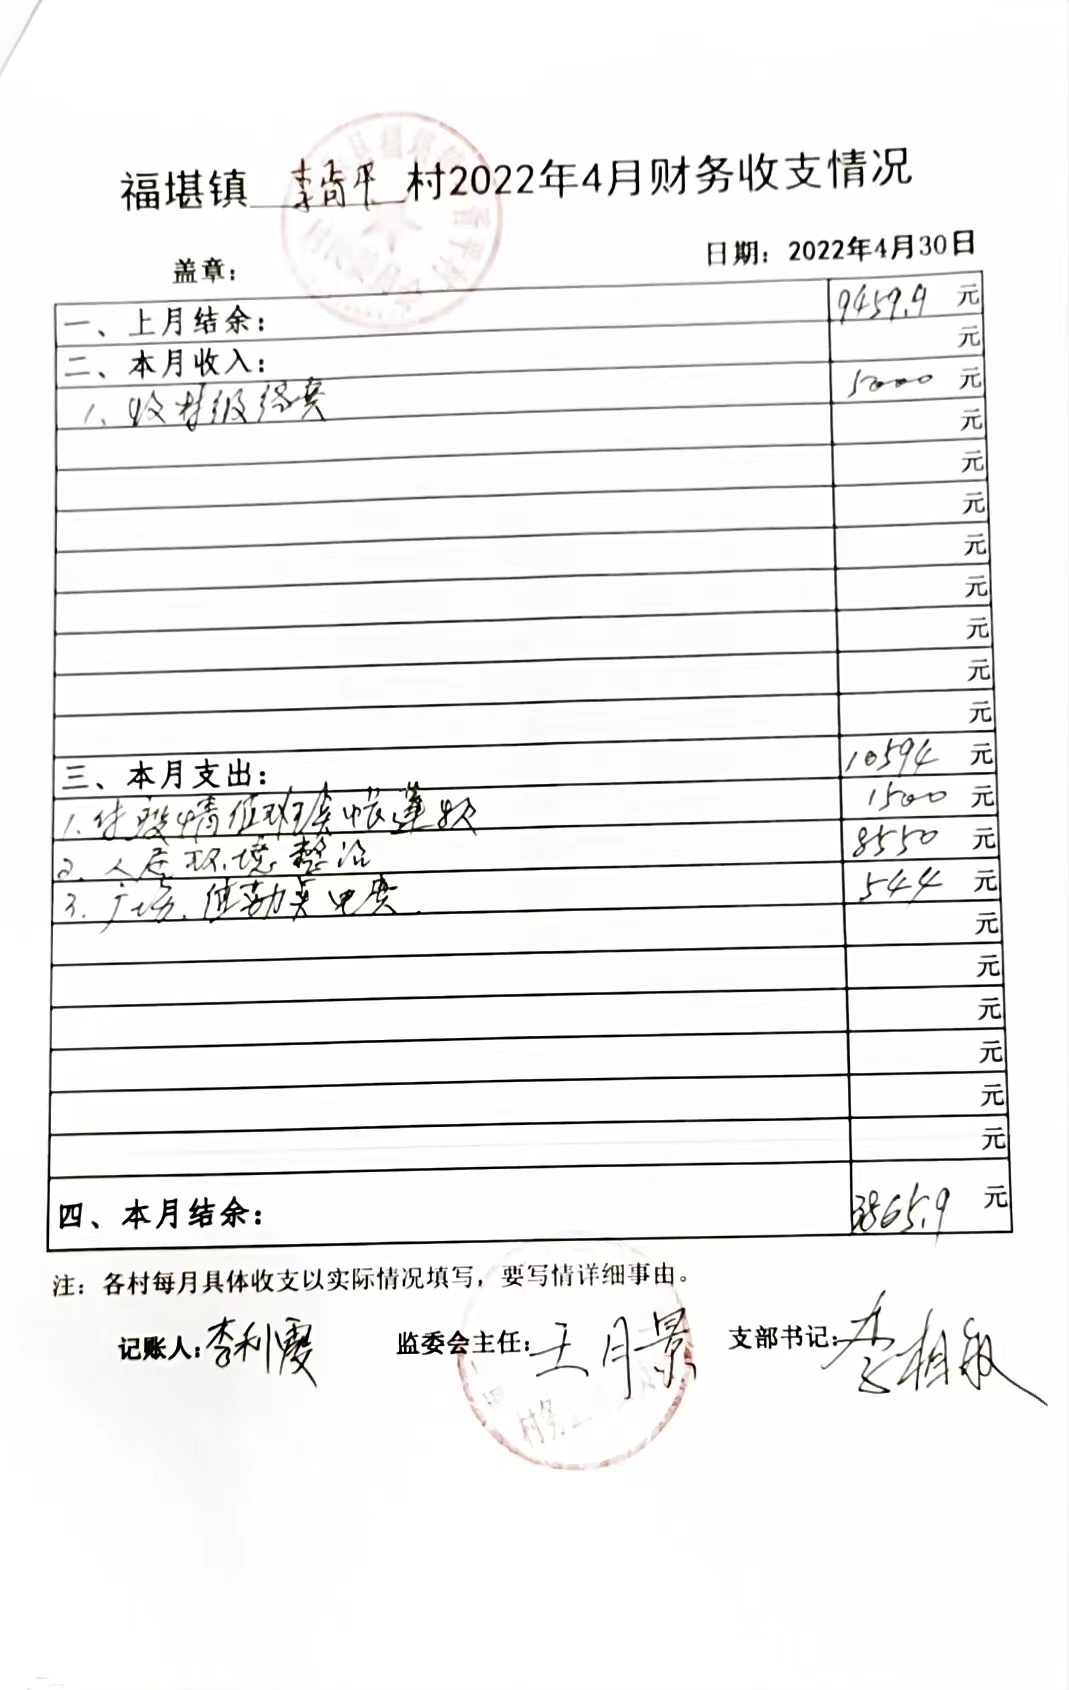 福堪镇 李肯平 村2022年4月财务收支情况
盖章： 日期：2022年4月30日
一、上月结余： 9459.9 元
二、本月收入： 元
1、收村级经费 5000 元
元
元
元
元
元
元
元
元
三、本月支出： 10594 元
1.付疫情值班点帐蓬款 1500 元
2.人居环境整治 8550 元
3.广场、值勤点电费. 544 元
元
元
元
元
元
元
四、本月结余： 3865.9 元
注：各村每月具体收支以实际情况填写，要写情详细事由。
记账人：李利霞 监委会主任：王月景 支部书记：李相敏